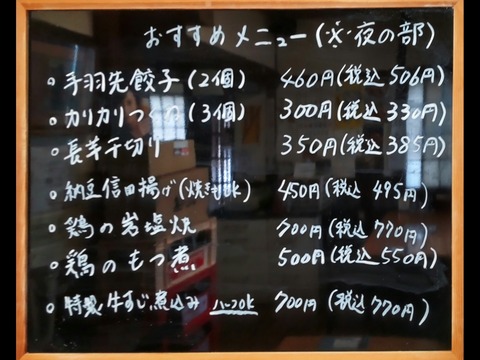 おすすめメニュー(※夜の部)
手羽先餃子(2個) 460円(税込506円)
カリカリつくね(3個) 300円(税込330円)
長芋千切り 350円(税込385円)
納豆信田揚げ(焼きもok) 450円(税込 495円)
鶏の岩塩焼 700円(税込770円)
鶏のもつ煮 500円(税込550円)
特製牛すじ煮込み ハーフok 700円(税込770円)